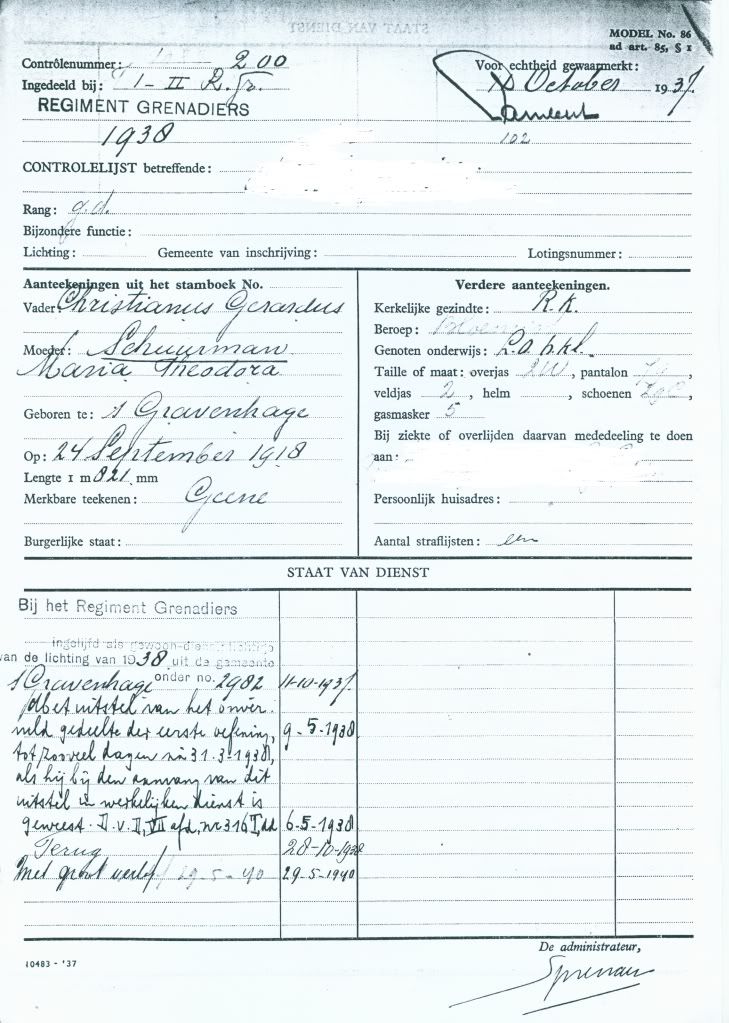 STAAT VAN DIENST
MODEL No. 86
ad art. 85, § 1
Contrôlenummer: 200
Voor echtheid gewaarmerkt:
Ingedeeld bij: I-II R. Gr.
October 1937.
REGIMENT GRENADIERS
1938
102
CONTROLELIJST betreffende:
Rang: g.d.
Bijzondere functie:
Lichting: Gemeente van inschrijving: Lotingsnummer:
Aanteekeningen uit het stamboek No.
Vader Christianus Gerardus
Moeder: Schuurman
Maria Theodora
Geboren te: s Gravenhage
Op: 24 September 1918
Lengte 1 m 821 mm
Merkbare teekenen: Geene
Burgerlijke staat:
Verdere aanteekeningen.
Kerkelijke gezindte: R.K.
Beroep:
Genoten onderwijs: L.O.
Taille of maat: overjas , pantalon ,
veldjas 2 , helm , schoenen ,
gasmasker 5
Bij ziekte of overlijden daarvan mededeeling te doen
aan:
Persoonlijk huisadres:
Aantal straflijsten: een
STAAT VAN DIENST
Bij het Regiment Grenadiers
ingelijfd als gewoon-dienstplichtige
van de lichting van 1938 uit de gemeente
s Gravenhage onder no. 2982 11-10-1937.
Met uitstel van het onver-
vuld gedeelte der eerste oefening, 9-5-1938
tot zooveel dagen na 31-3-1938,
als hij bij den aanvang van dit
uitstel in werkelijken dienst is
geweest. D.v.D, VII afd, nr 316 I, dd 6-5-1938
Terug 28-10-1938
Met groot verlof 29-5-40 29-5-1940
De administrateur,
10483 - '37